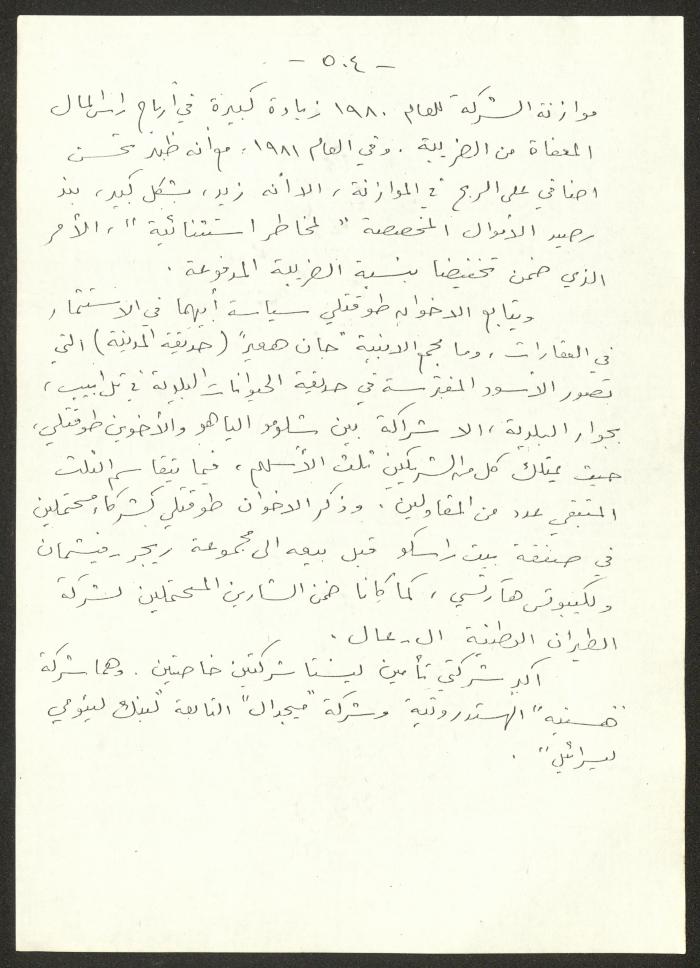 - ٥٠٤ -
موازنة الشركة للعام ١٩٨٠ زيادة كبيرة في أرباح راس المال
المعفاة من الضريبة . وفي العام ١٩٨١، مع أنه طرأ تحسن
اضافي على الربح في الموازنة ، الا أنه زيد ، بشكل كبير ، بند
رصيد الأموال المخصصة " لمخاطر استثنائية " ، الأمر
الذي ضمن تخفيضا بنسبة الضريبة المدفوعة .
ويتابع الاخوان طوقتلي سياسة أبيهما في الاستثمار
في العقارات ، وما مجمع الابنية " جان هعير" (حديقة المدينة) التي
تصور الأسود المفترسة في حديقة الحيوانات البلدية في تل ابيب ،
بجوار البلدية ، الا شراكة بين شلومو الياهو والأخوين طوقتلي،
حيث يمتلك كل من الشريكين ثلث الأسهم ، فيما يتقاسم الثلث
المتبقي عدد من المقاولين . وذكر الاخوان طوقتلي كشركاء محتملين
في صفقة بيت راسكو قبل بيعه الى مجموعة ريجر - فيشمان
ولكيبوتس هآرتسي ، كما كانا ضمن الشارين المحتملين لشركة
الطيران الوطنية ال - عال .
اكبر شركتي تأمين ليستا شركتين خاصتين . وهما شركة
"هسنيه" الهستدروتية وشركة "ميجدال" التابعة "لبنك ليئومي
ليسرائيل" .